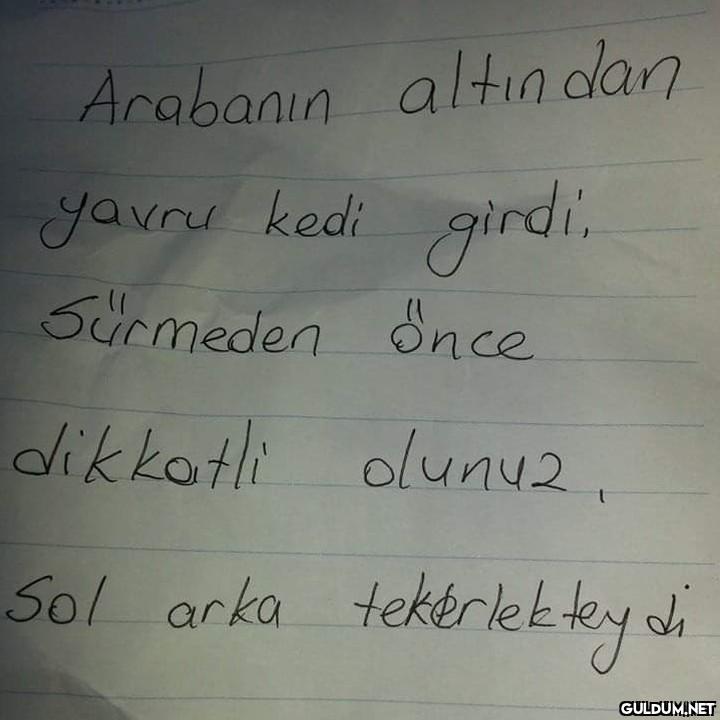 Arabanın altından
yavru kedi girdi,
Sürmeden önce
dikkatli olunuz,
Sol arka tekerlekteydi
GULDUM.NET